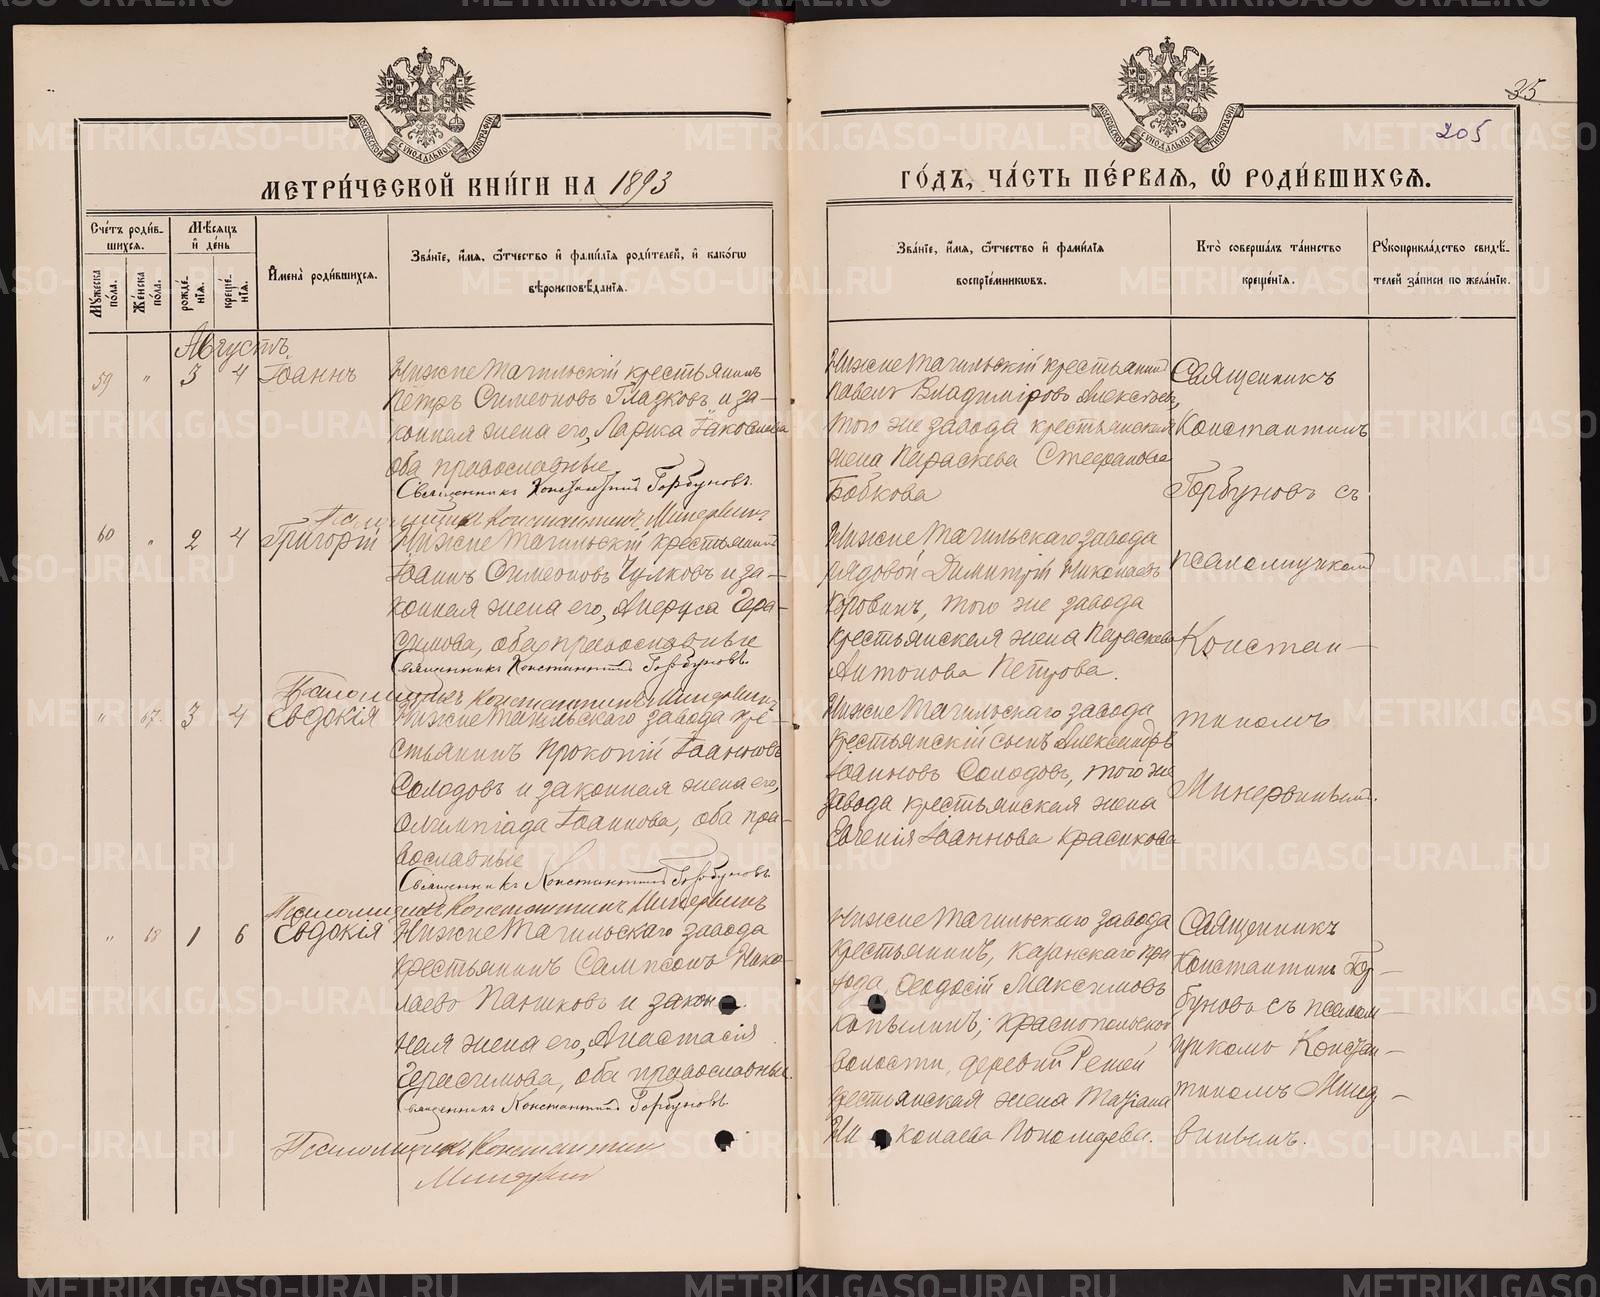 35
205
МЕТРИ́ЧЕСКОЙ КНИ́ГИ НА 1893
ГО́ДЪ, ЧА́СТЬ ПЕ́РВАЯ, Ѿ РОДИ́ВШИХСЯ.
Сче́тъ роди́в-
шихся.
Мѣ́сяцъ
и҆ де́нь
Мꙋ́жеска по́ла.
Же́нска по́ла.
рожде́-
нїѧ.
креще́-
нїѧ.
И҆мена̀ роди́вшихся.
Зва́нїе, и҆́мѧ, ѻ҆́тчество и҆ фамѝлїѧ роди́телей, и҆ како́гѡ
вѣроисповѣ́данїѧ.
Зва́нїе, и҆́мѧ, ѻ҆́тчество и҆ фамѝлїѧ
воспрїе́мникѡвъ.
Кто̀ соверша́лъ та́инство
креще́нїѧ.
Рꙋкоприкла́дство свидѣ́-
телей за́писи по жела́нїю.
Августъ
59 " 3 4 Іоаннъ
Нижнетагильскій крестьянинъ
Петръ Симеоновъ Глазковъ и за-
конная жена его, Лариса Іаковлева
оба православные
Священникъ Константинъ Горбуновъ.
Псаломщикъ Константинъ Минервинъ
Нижнетагильскій крестьянинъ
Павелъ Владиміровъ Алексѣевъ,
того же завода крестьянская
жена Параскева Стефанова
Бобкова
Священникъ
Константинъ
Горбуновъ съ
псаломщикомъ
Констан-
тиномъ
Минервинымъ.
60 " 2 4 Григорій
Нижнетагильскій крестьянинъ
Іоаннъ Симеоновъ Чулковъ и за-
конная жена его, Анфуса Гера-
симова, оба православные
Священникъ Константинъ Горбуновъ.
Псаломщикъ Константинъ Минервинъ
Нижнетагильскаго завода
рядовой Димитрій Николаевъ
Коровинъ, того же завода
крестьянская жена Параскева
Антонова Петрова.
" 67. 3 4 Евдокія
Нижнетагильскаго завода кре-
стьянинъ Прокопій Іоанновъ
Солодовъ и законная жена его,
Олимпіада Іоаннова, оба пра-
вославные
Священникъ Константинъ Горбуновъ.
Псаломщикъ Константинъ Минервинъ
Нижнетагильскаго завода
крестьянскій сынъ Александръ
Іоанновъ Солодовъ, того же
завода крестьянская жена
Евгенія Іоаннова Красикова
" 68 1 6 Евдокія
Нижнетагильскаго завода
крестьянинъ Сампсонъ Нико-
лаевъ Паньковъ и закон
ная жена его, Анастасія
Герасимова, оба православные.
Священникъ Константинъ Горбуновъ
Псаломщикъ Константинъ
Минервинъ
Нижнетагильскаго завода
крестьянинъ, Казанскаго при
хода, Ѳеодосій Максимовъ
Копылинъ; Краснопольской
волости, деревни Рѣшей
крестьянская жена Татіана
Ни колаева Пономарева.
Священникъ
Константинъ Гор-
буновъ съ псалом-
щикомъ Констан-
тиномъ Минер-
винымъ.
METRIKI.GASO-URAL.RU